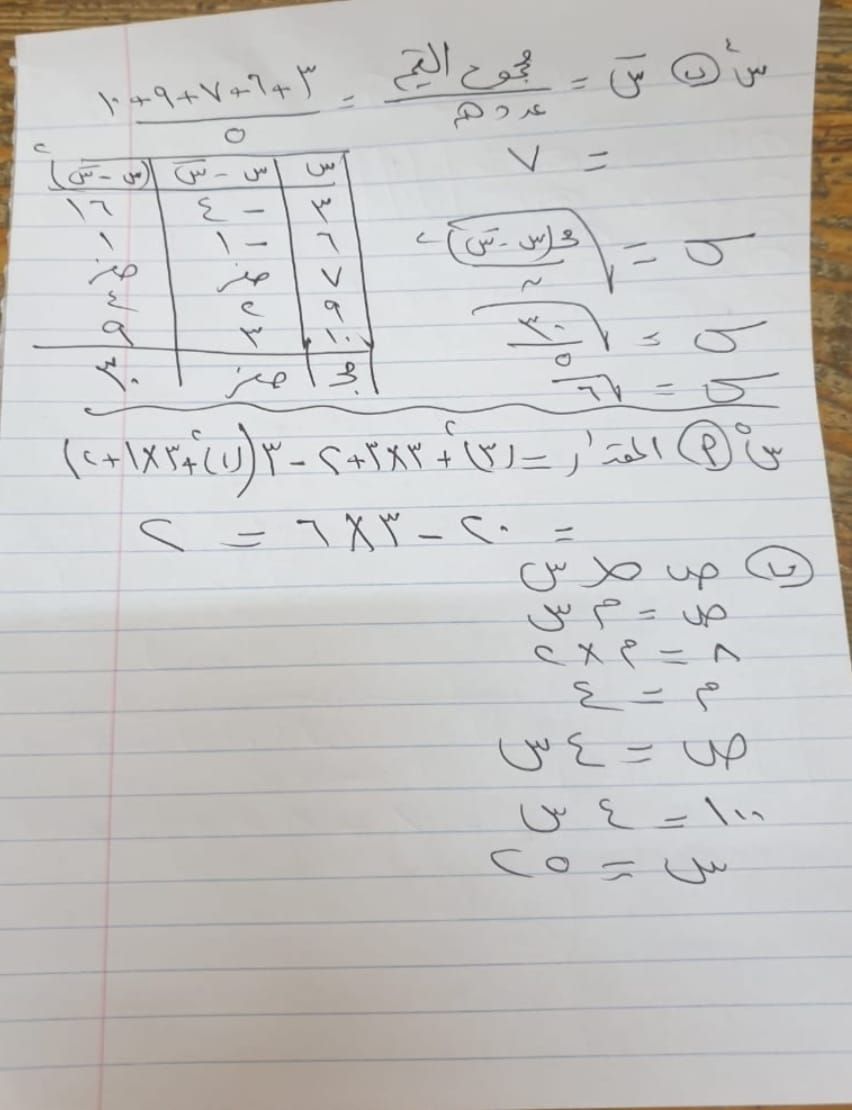 س٤ ب) س̄ = مجموع القيم / عددها = ٣+٦+٧+٩+١٠ / ٥
= ٧
س | س - س̄ | (س - س̄)²
٣ | -٤ | ١٦
٦ | -١ | ١
٧ | صفر | صفر
٩ | ٢ | ٤
١٠ | ٣ | ٩
| صفر | ٣٠
σ = √(مجـ(س - س̄)² / ن)
σ = √(٣٠ / ٥)
σ = √٦
س٥ أ) المقدار = (٣)² + ٣×٣ + ٢ - ٣((١)² + ٣×١ + ٢)
= ٢٠ - ٣×٦ = ٢
ب) ص ∝ س
ص = م س
٨ = م × ٢
م = ٤
ص = ٤ س
١٠٠ = ٤ س
س = ٢٥